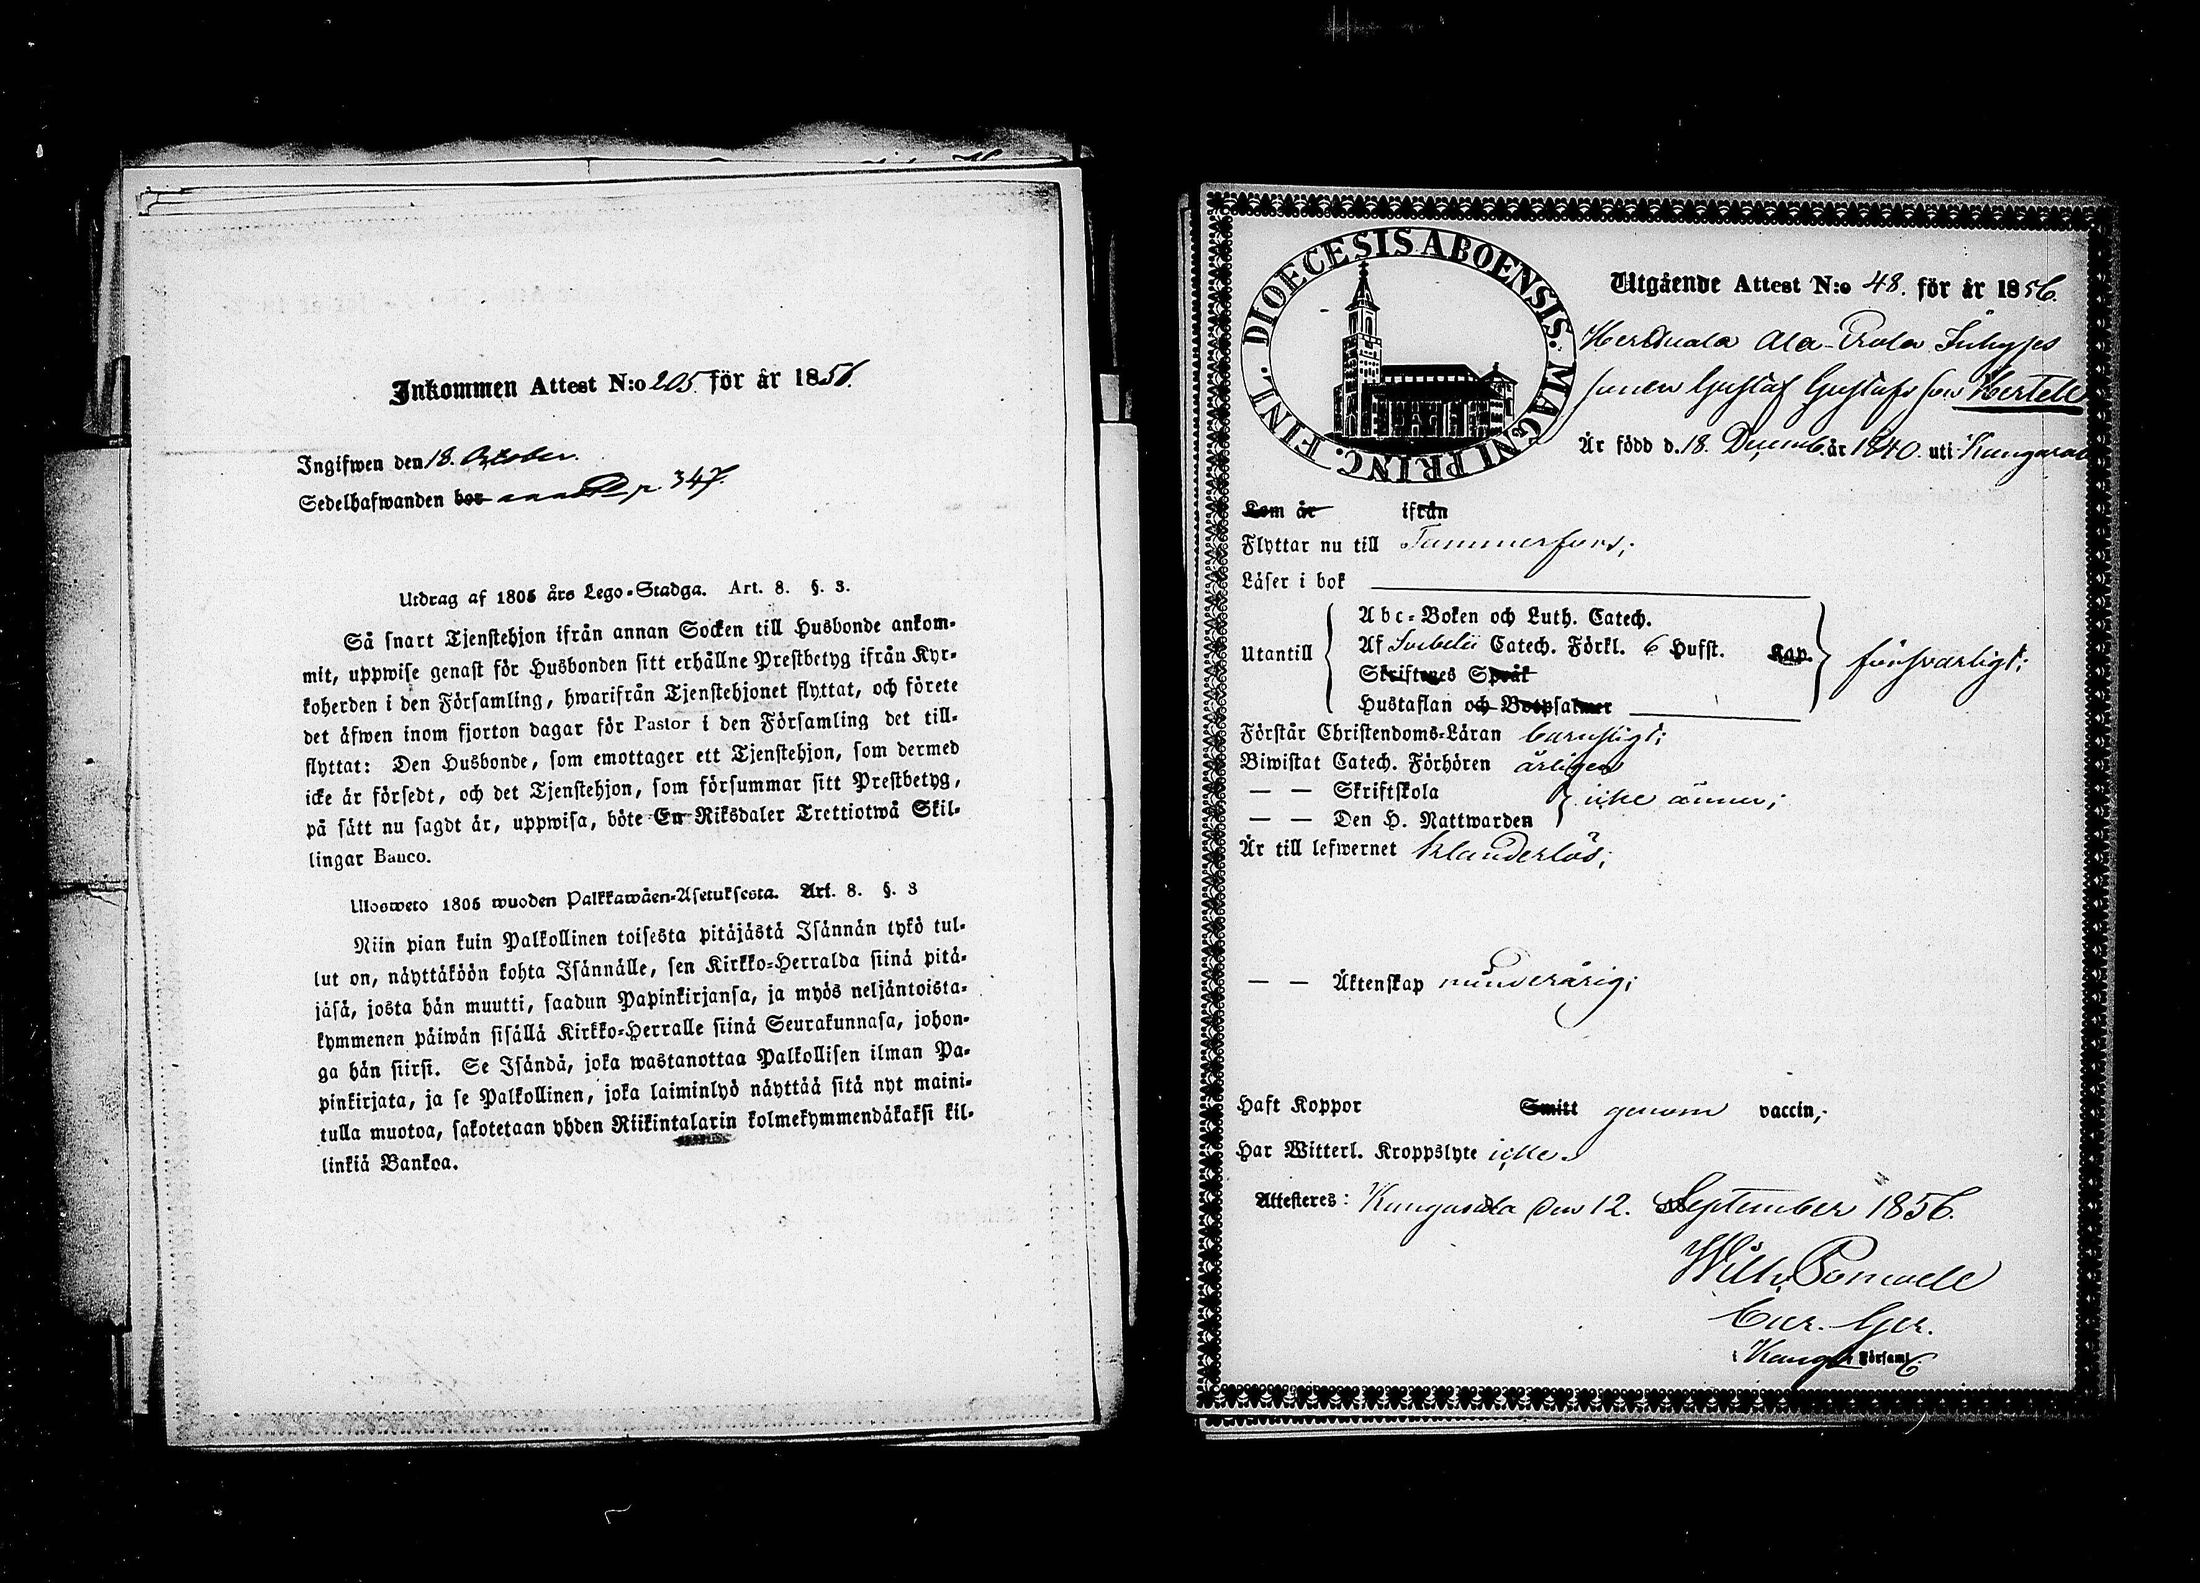 Inkommen Attest N:o 205. för år 1856.
Ingifwen den 18. October.
Sedelhafwanden bor p. 347.
Utdrag af 1805 års Lego-Stadga. Art. 8. §. 3.
Så snart Tjenstehjon ifrån annan Socken till Husbonde ankom-
mit, uppwise genast för Husbonden sitt erhållne Prestbetyg ifrån Kyr-
koherden i den Församling, hwarifrån Tjenstehjonet flyttat, och förete
det äfwen inom fjorton dagar för Pastor i den Församling det till-
flyttat: Den Husbonde, som emottager ett Tjenstehjon, som dermed
icke är försedt, och det Tjenstehjon, som försummar sitt Prestbetyg,
på sätt nu sagdt är, uppwisa, böte En Riksdaler Trettiotwå Skil-
lingar Banco.
Ulosweto 1805 wuoden Palkkawäen-Asetuksesta. Art. 8. §. 3
Niin pian kuin Palkollinen toisesta pitäjästä Isännän tykö tul-
lut on, näyttäköön kohta Isännälle, sen Kirkko-Herralda siinä pitä-
jäsä, josta hän muutti, saadun Papinkirjansa, ja myös neljäntoista-
kymmenen päiwän sisällä Kirkko-Herralle siinä Seurakunnasa, johon-
ga hän siirsi. Se Isändä, joka wastanottaa Palkollisen ilman Pa-
pinkirjata, ja se Palkollinen, joka laiminlyö näyttää sitä nyt maini-
tulla muotoa, sakotetaan yhden Riikintalarin kolmekymmendäkaksi kil-
linkiä Bankoa.
DIOECESIS ABOENSIS. MAGNI PRINC. FINL.
Utgående Attest N:o 48. för år 1856.
Ala-Prola Inhyses
sonen Gustaf Gustafs son Hertell
Är född d. 18. Decemb. år 1840. uti Kangasala
Kom år ifrån
Flyttar nu till Tammerfors;
Läser i bok
Utantill
Abc-Boken och Luth. Catech.
Af Svebelii Catech. Förkl. 6 Hufst. Kap.
Skriftenes Språk
Hustaflan och Botpsalmer
försvarligt;
Förstår Christendoms-Läran barnsligt;
Biwistat Catech. Förhören årligen
— — Skriftskola
— — Den H. Nattwarden
icke ännu;
Är till lefwernet klanderlös;
— — Äktenskap minderårig;
Haft Koppor Smitt genom vaccin;
Har Witterl. Kroppslyte icke.
Attesteres: Kangasala den 12. September 1856.
Wilh.
Cur. Ger.
i Kang. Församl.